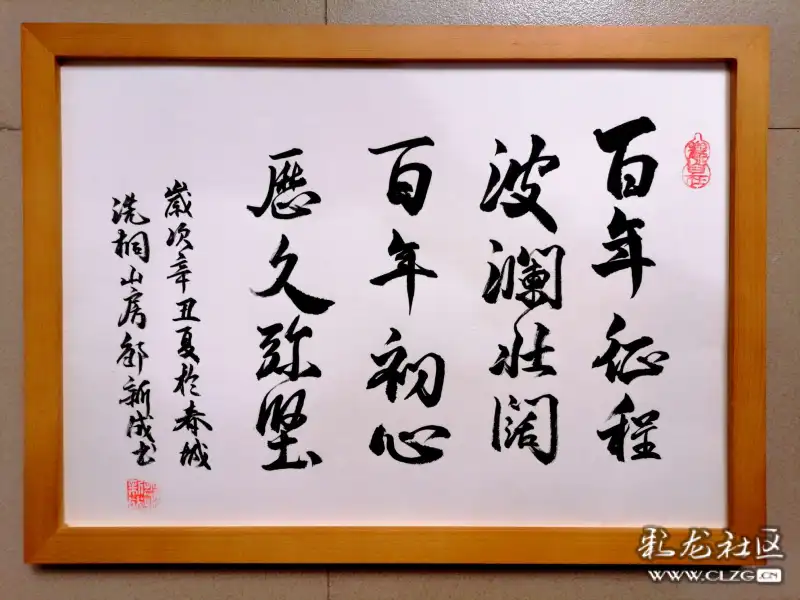 百年征程
波澜壮阔
百年初心
歷久弥堅
歲次辛丑夏於春城
洗桐山房 新成书
彩龙社区
WWW.CLZG.CN